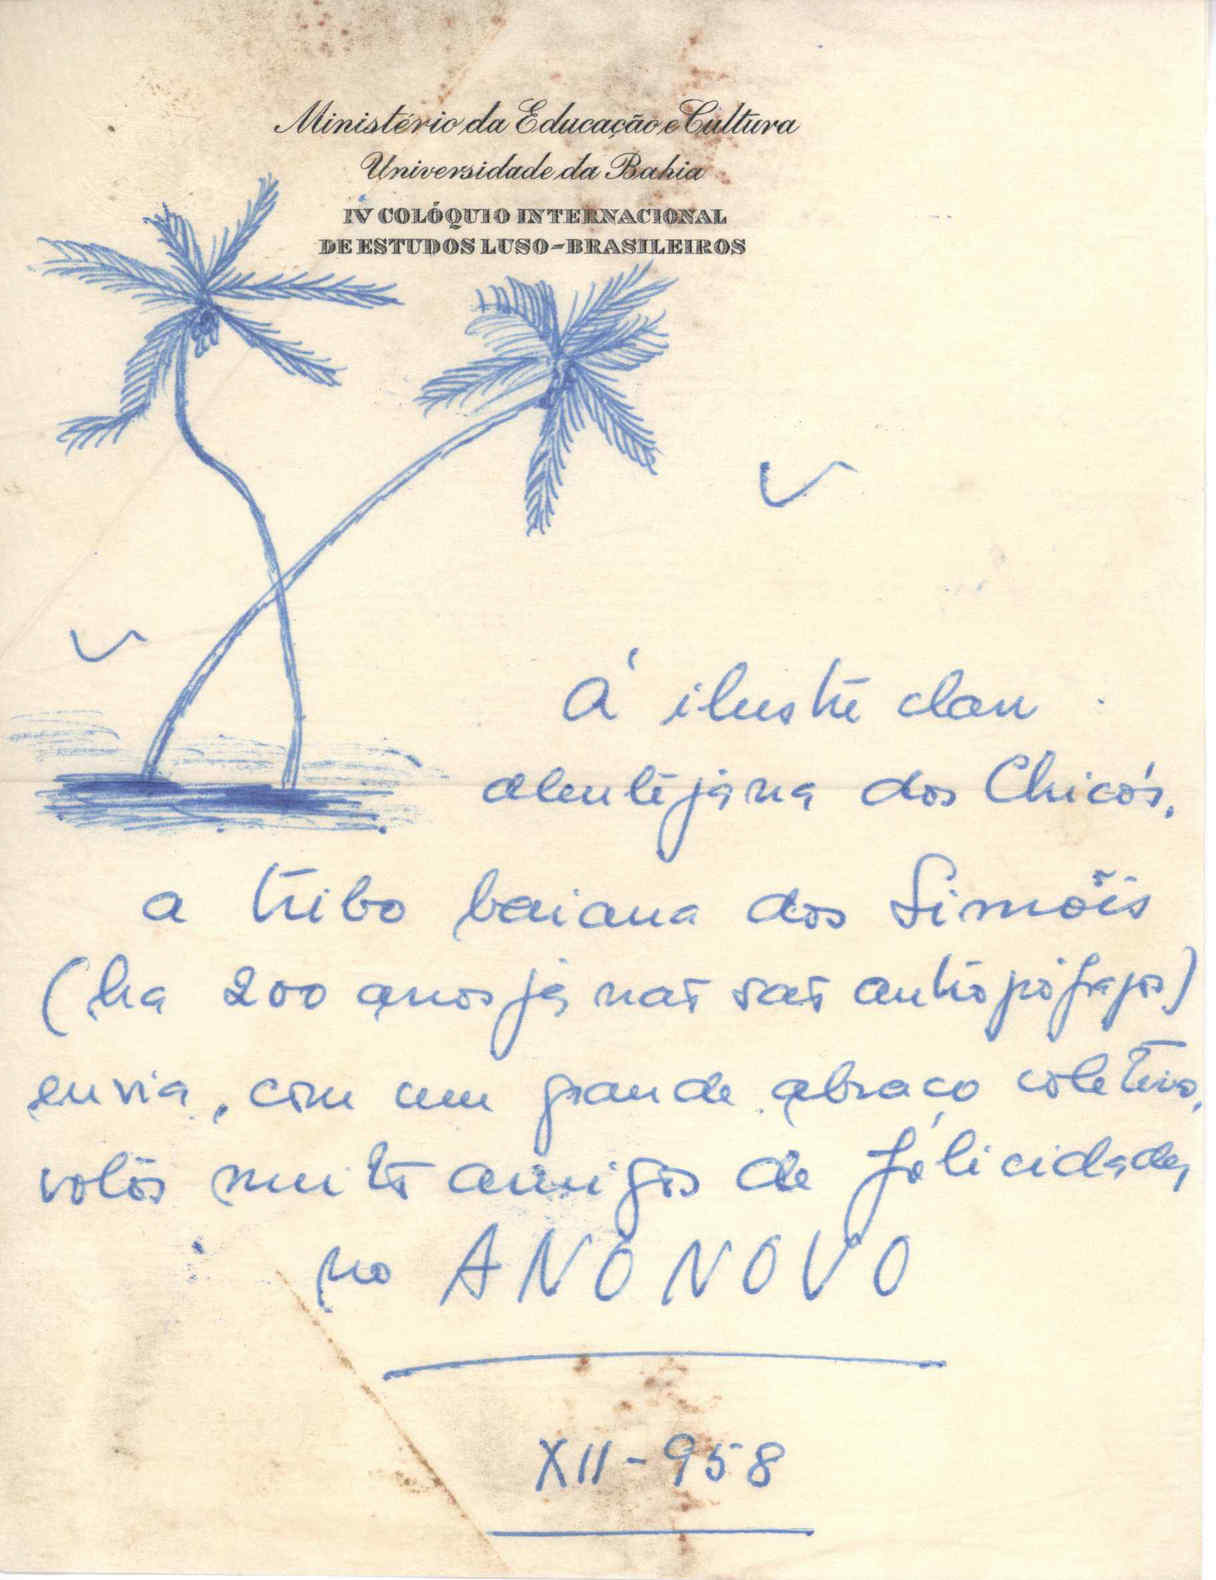 Ministério da Educação e Cultura
Universidade da Bahia
IV COLÓQUIO INTERNACIONAL
DE ESTUDOS LUSO-BRASILEIROS
Á ilustre clan
alentejana dos Chicós,
a tribo baiana dos Simões
(ha 200 anos já não são antropófagos)
envia, com um grande abraço coletivo,
votos muito amigos de felicidades
no ANO NOVO
XII-958